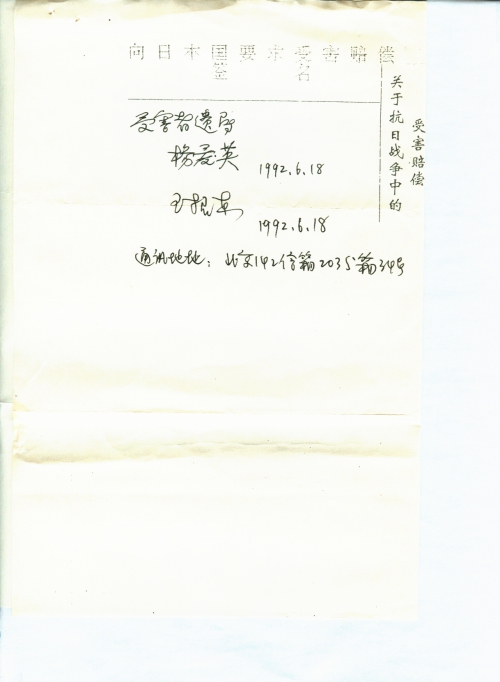 向日本国要求受害赔偿
签名
关于抗日战争中的
受害赔偿
受害者遗属
杨爱英 1992.6.18
1992.6.18
通讯地址：北京142信箱203分箱34号